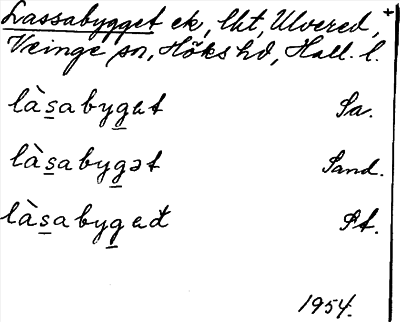 Lassabygget ek, lht, Ulvered, +
Veinge sn, Höks hd, Hall. l.
làs̲abyg̲et Sa.
làs̲abyg̲ət Sand.
làs̲abyg̲eđ St.
1954.